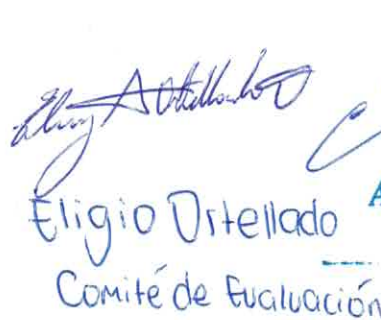 Eligio Ostellado
Comité de Evaluación